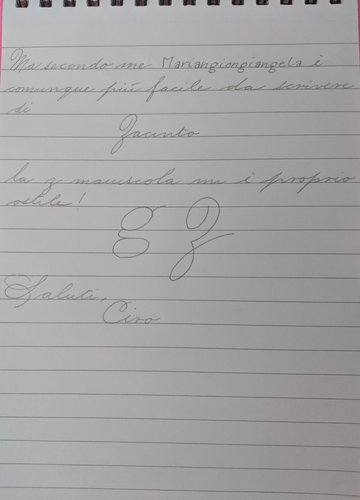 Ma secondo me Mariangiongiangela è
comunque più facile da scrivere
di
Zacinto
la z maiuscola mi è proprio
ostile!
g Z
Saluti,
Ciro